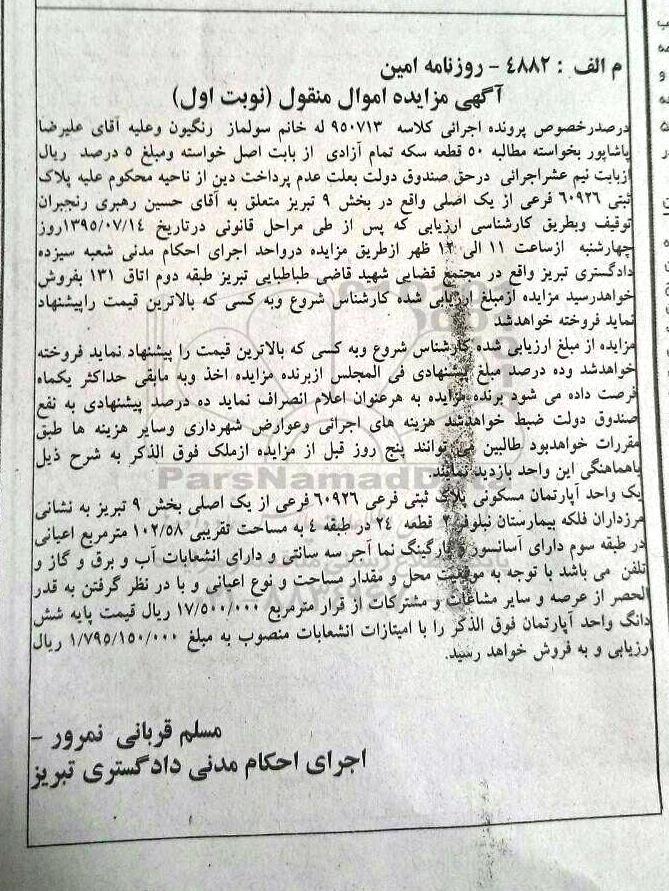 م الف : ۴۸۸۲ - روزنامه امین
آگهی مزایده اموال منقول (نوبت اول)
درصدرخصوص پرونده اجرائی کلاسه ۹۵۰۷۱۳ له خانم سولماز رنگیون وعلیه آقای علیرضا
پاشاپور بخواسته مطالبه ۵۰ قطعه سکه تمام آزادی از بابت اصل خواسته ومبلغ ۵ درصد ریال
ازبابت نیم عشراجرائی درحق صندوق دولت بعلت عدم پرداخت دین از ناحیه محکوم علیه پلاک
ثبتی ۶۰۹۲۶ فرعی از یک اصلی واقع در بخش ۹ تبریز متعلق به آقای حسین رهبری رنجبران
توقیف وبطریق کارشناسی ارزیابی که پس از طی مراحل قانونی درتاریخ ۱۳۹۵/۰۷/۱۴روز
چهارشنبه ازساعت ۱۱ الی ۱۲ ظهر ازطریق مزایده درواحد اجرای احکام مدنی شعبه سیزده
دادگستری تبریز واقع در مجتمع قضایی شهید قاضی طباطبایی تبریز طبقه دوم اتاق ۱۳۱ بفروش
خواهدرسید مزایده ازمبلغ ارزیابی شده کارشناس شروع وبه کسی که بالاترین قیمت راپیشنهاد
نماید فروخته خواهدشد
مزایده از مبلغ ارزیابی شده کارشناس شروع وبه کسی که بالاترین قیمت را پیشنهاد نماید فروخته
خواهدشد وده درصد مبلغ پیشنهادی فی المجلس ازبرنده مزایده اخذ وبه مابقی حداکثر یکماه
فرصت داده می شود برنده مزایده به هرعنوان اعلام انصراف نماید ده درصد پیشنهادی به نفع
صندوق دولت ضبط خواهدشد هزینه های اجرائی وعوارض شهرداری وسایر هزینه ها طبق
مقررات خواهدبود طالبین می توانند پنج روز قبل از مزایده ازملک فوق الذکر به شرح ذیل
باهماهنگی این واحد بازدید نمایند
یک واحد آپارتمان مسکونی پلاک ثبتی فرعی ۶۰۹۲۶ فرعی از یک اصلی بخش ۹ تبریز به نشانی
مرزداران فلکه بیمارستان نیلوفر ۲ قطعه ۲۴ در طبقه ۴ به مساحت تقریبی ۱۰۲/۵۸ مترمربع اعیانی
در طبقه سوم دارای آسانسور و پارگینگ نما آجر سه سانتی و دارای انشعابات آب و برق و گاز و
تلفن می باشد با توجه به موقعیت محل و مقدار مساحت و نوع اعیانی و با در نظر گرفتن به قدر
الحصر از عرصه و سایر مشاعات و مشترکات از قرار مترمربع ۱۷/۵۰۰/۰۰۰ ریال قیمت پایه شش
دانگ واحد آپارتمان فوق الذکر را با امیتازات انشعابات منصوب به مبلغ ۱/۷۹۵/۱۵۰/۰۰۰ ریال
ارزیابی و به فروش خواهد رسید.
مسلم قربانی نمرور -
اجرای احکام مدنی دادگستری تبریز
ParsNamadData